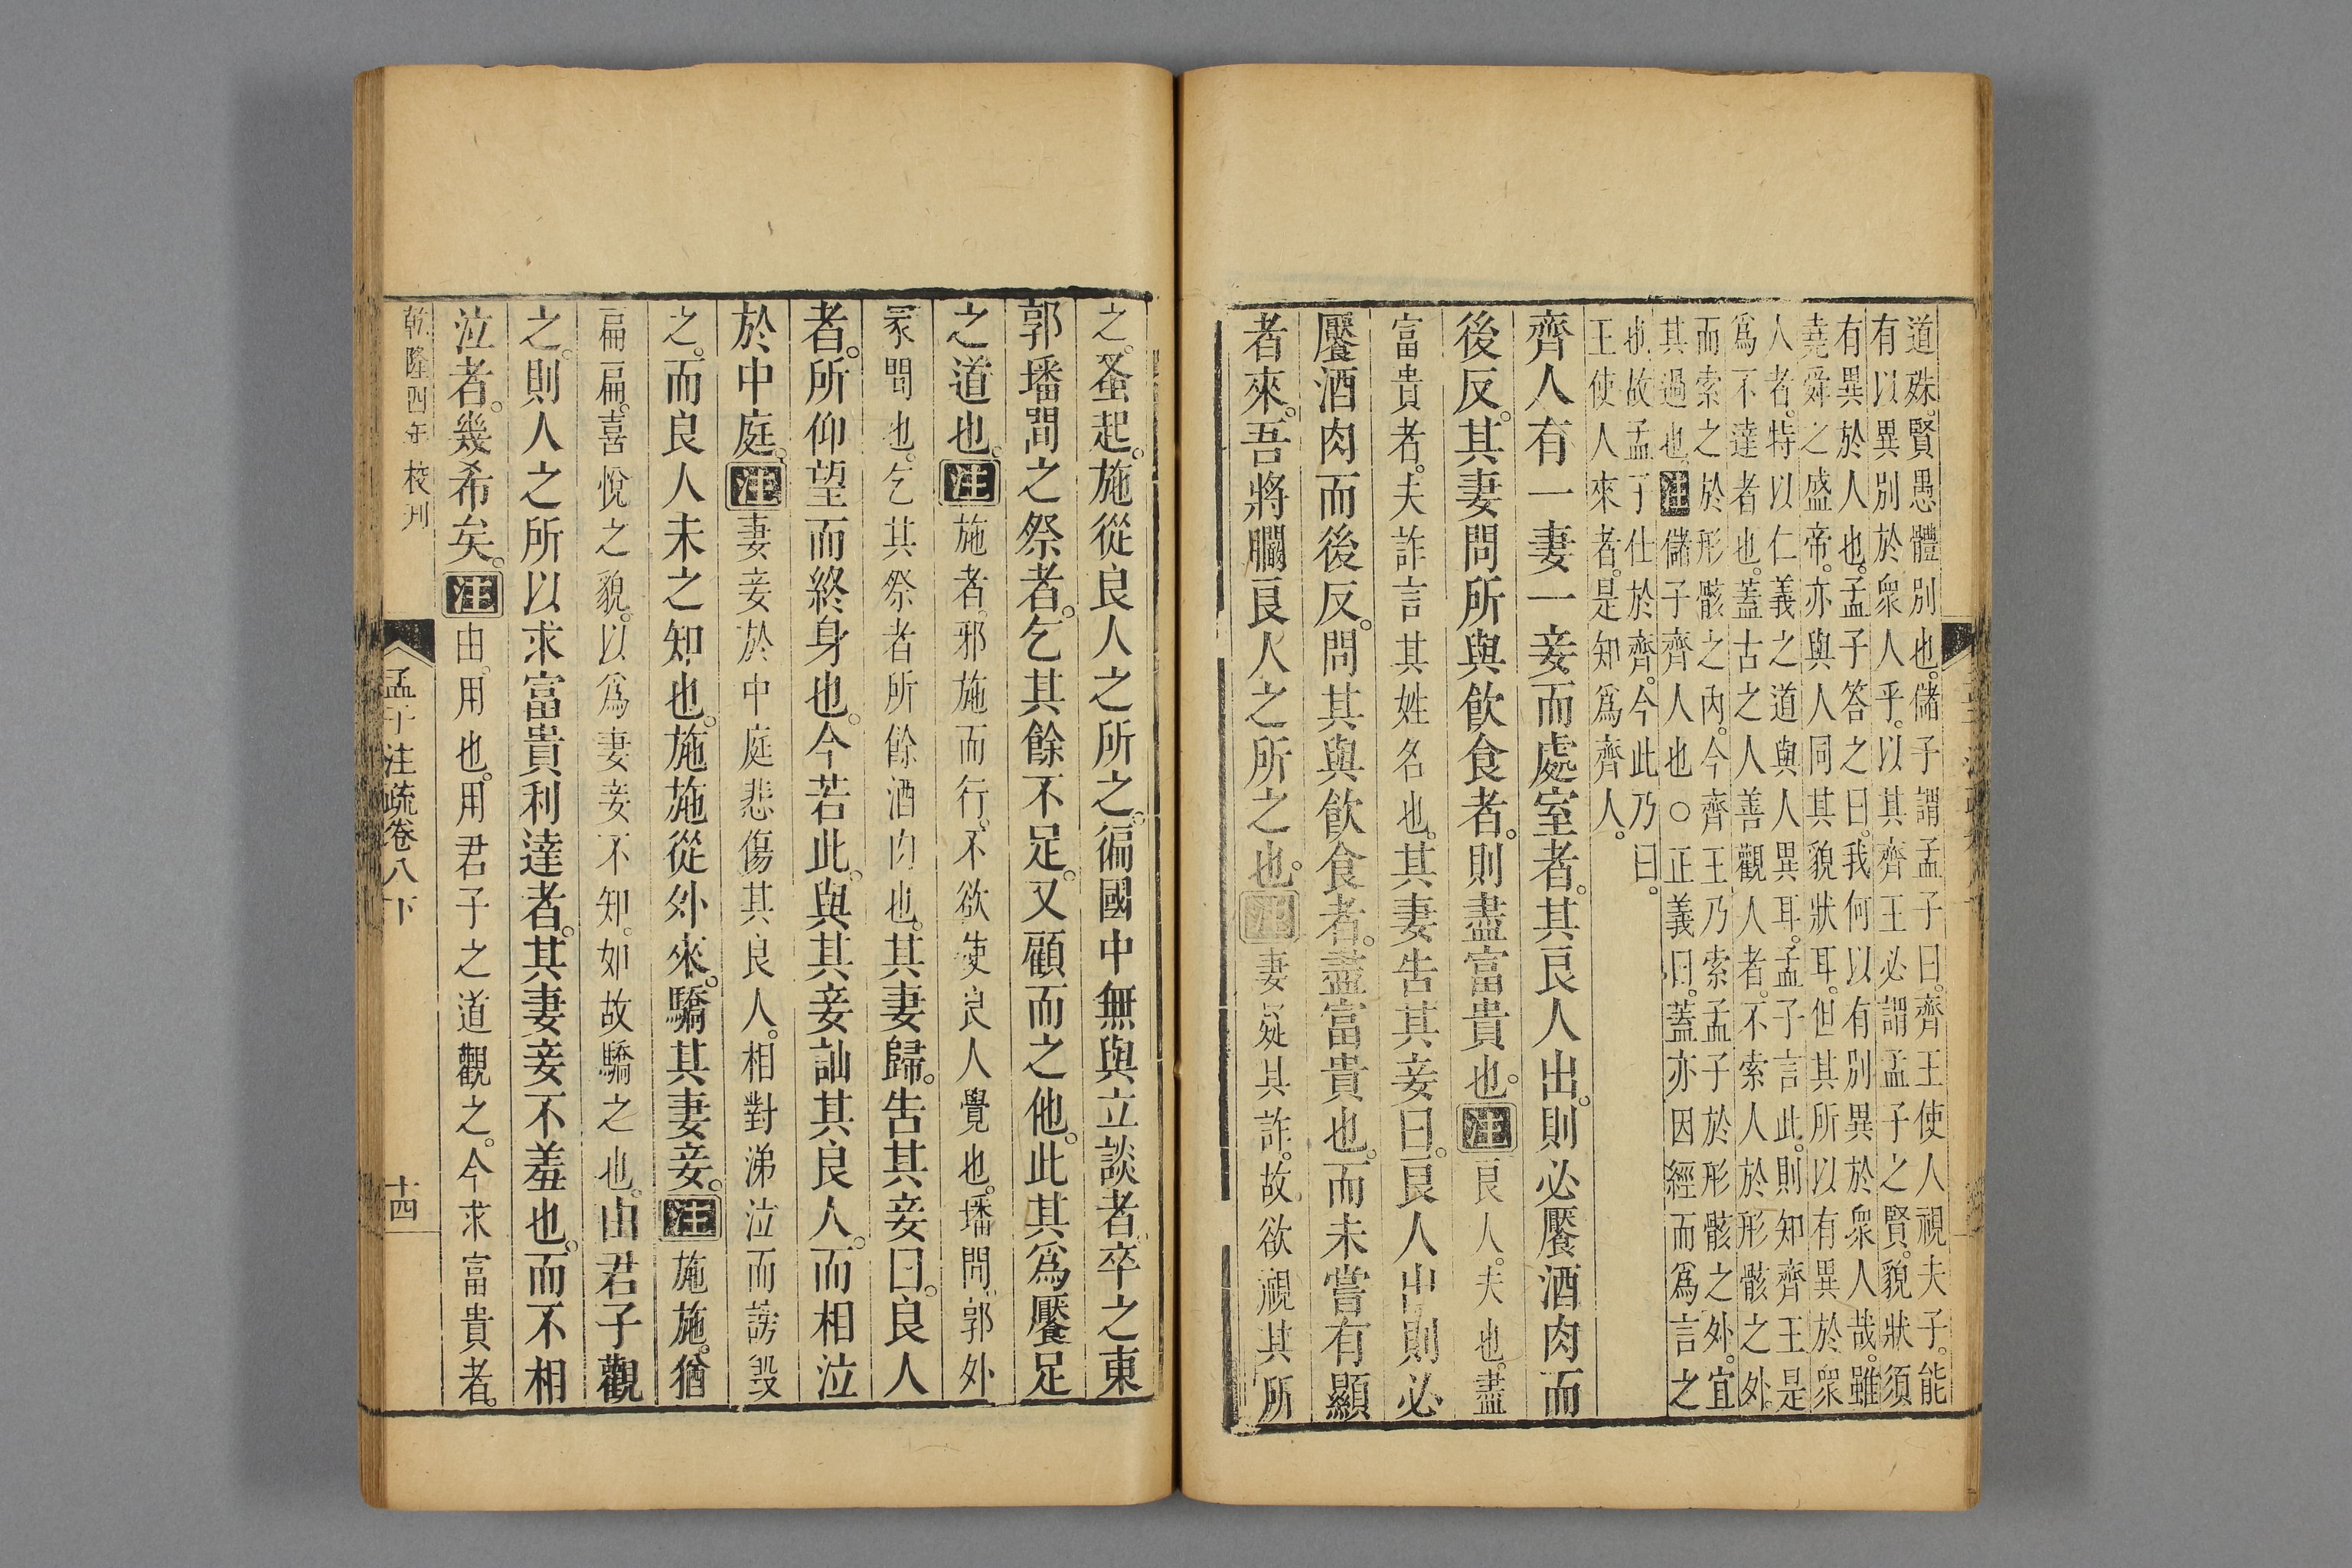 道殊。賢愚體別也。儲子謂孟子曰。齊王使人視夫子。能
有以異別於衆人乎。以其齊王必謂孟子之賢。貌狀須
有異於人也。孟子答之曰。我何以有別異於衆人哉。雖
堯舜之盛帝。亦與人同其貌狀耳。但其所以有異於衆
人者。特以仁義之道與人異耳。孟子言此。則知齊王是
爲不達者也。蓋古之人善觀人者。不索人於形骸之外。
而索之於形骸之內。今齊王乃索孟子於形骸之外。宜
其過也。注儲子齊人也○正義曰。蓋亦因經而爲言之
也。故孟子仕於齊。今此乃曰。
王使人來者。是知爲齊人。
齊人有一妻一妾而處室者。其良人出。則必饜酒肉而
後反。其妻問所與飮食者。則盡富貴也。注良人。夫也。盡
富貴者。夫詐言其姓名也。其妻告其妾曰。良人出則必
饜酒肉而後反。問其與飮食者。盡富貴也。而未嘗有顯
者來。吾將瞷良人之所之也。注妻疑其詐。故欲視其所
之。蚤起。施從良人之所之。徧國中無與立談者。卒之東
郭墦間之祭者。乞其餘不足。又顧而之他。此其爲饜足
之道也。注施者。邪施而行。不欲使良人覺也。墦間。郭外
冢間也。乞其祭者所餘酒肉也。其妻歸。告其妾曰。良人
者。所仰望而終身也。今若此。與其妾訕其良人。而相泣
於中庭。注妻妾於中庭悲傷其良人。相對涕泣而謗毀
之。而良人未之知也。施施從外來。驕其妻妾。注施施。猶
扁扁。喜悅之貌。以爲妻妾不知。如故驕之也。由君子觀
之。則人之所以求富貴利達者。其妻妾不羞也。而不相
泣者。幾希矣。注由。用也。用君子之道觀之。今求富貴者。
乾隆四年校刊
孟子注疏卷八下
十四